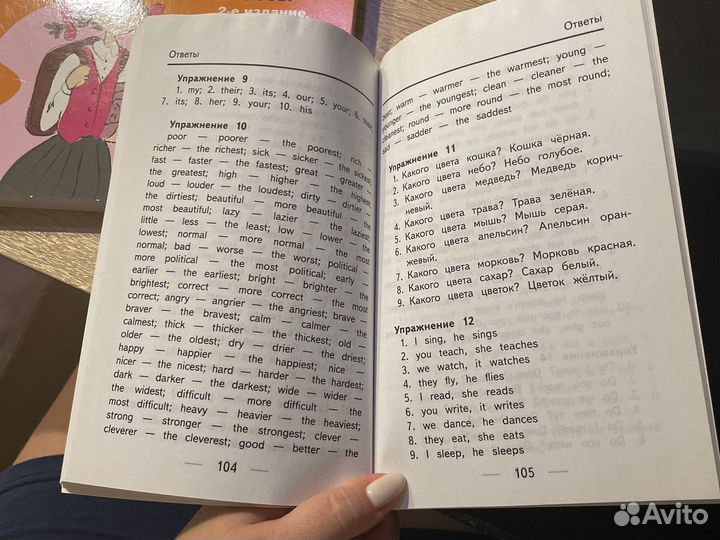 2-е издание,
Ответы
Упражнение 9
1. my; 2. their; 3. its; 4. our; 5. your; 6. their;
7. its; 8. her; 9. your; 10. his
Упражнение 10
poor — poorer — the poorest; rich —
richer — the richest; sick — sicker — the sickest;
fast — faster — the fastest; great — greater —
the greatest; high — higher — the highest;
loud — louder — the loudest; dirty — dirtier —
the dirtiest; beautiful — more beautiful — the
most beautiful; lazy — lazier — the laziest;
little — less — the least; low — lower — the
lowest; normal — more normal — the most
normal; bad — worse — the worst; political —
more political — the most political; early —
earlier — the earliest; bright — brighter — the
brightest; correct — more correct — the most
correct; angry — angrier — the angriest; brave —
braver — the bravest; calm — calmer — the
calmest; thick — thicker — the thickest; old —
older — the oldest; dry — drier — the driest;
happy — happier — the happiest; nice —
nicer — the nicest; hard — harder — the hardest;
dark — darker — the darkest; wide — wider —
the widest; difficult — more difficult — the
most difficult; heavy — heavier — the heaviest;
strong — stronger — the strongest; clever —
cleverer — the cleverest; good — better — the
— 104 —
Ответы
best; warm — warmer — the warmest; young —
younger — the youngest; clean — cleaner — the
cleanest; round — more round — the most round;
sad — sadder — the saddest
Упражнение 11
1. Какого цвета кошка? Кошка чёрная.
2. Какого цвета небо? Небо голубое.
3. Какого цвета медведь? Медведь корич-
невый.
4. Какого цвета трава? Трава зелёная.
5. Какого цвета мышь? Мышь серая.
6. Какого цвета апельсин? Апельсин оран-
жевый.
7. Какого цвета морковь? Морковь красная.
8. Какого цвета сахар? Сахар белый.
9. Какого цвета цветок? Цветок жёлтый.
Упражнение 12
1. I sing, he sings
2. you teach, she teaches
3. we watch, it watches
4. they fly, he flies
5. I read, she reads
6. you write, it writes
7. we dance, he dances
8. they eat, she eats
9. I sleep, he sleeps
— 105 —
Avito